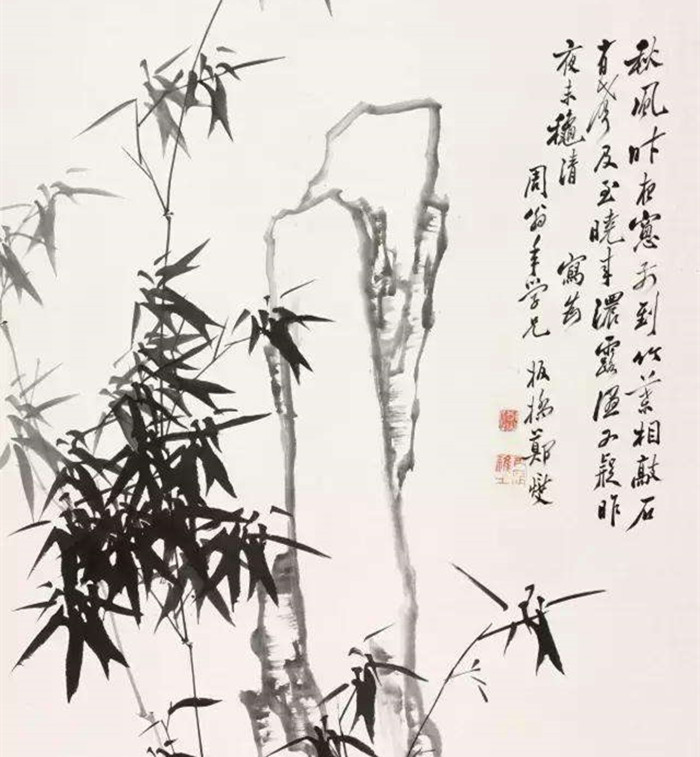 秋風昨夜窓前到竹葉相敲石
有聲及至曉來濃露湿又疑昨
夜未穐清 寫為
周翁年學兄 板橋鄭燮